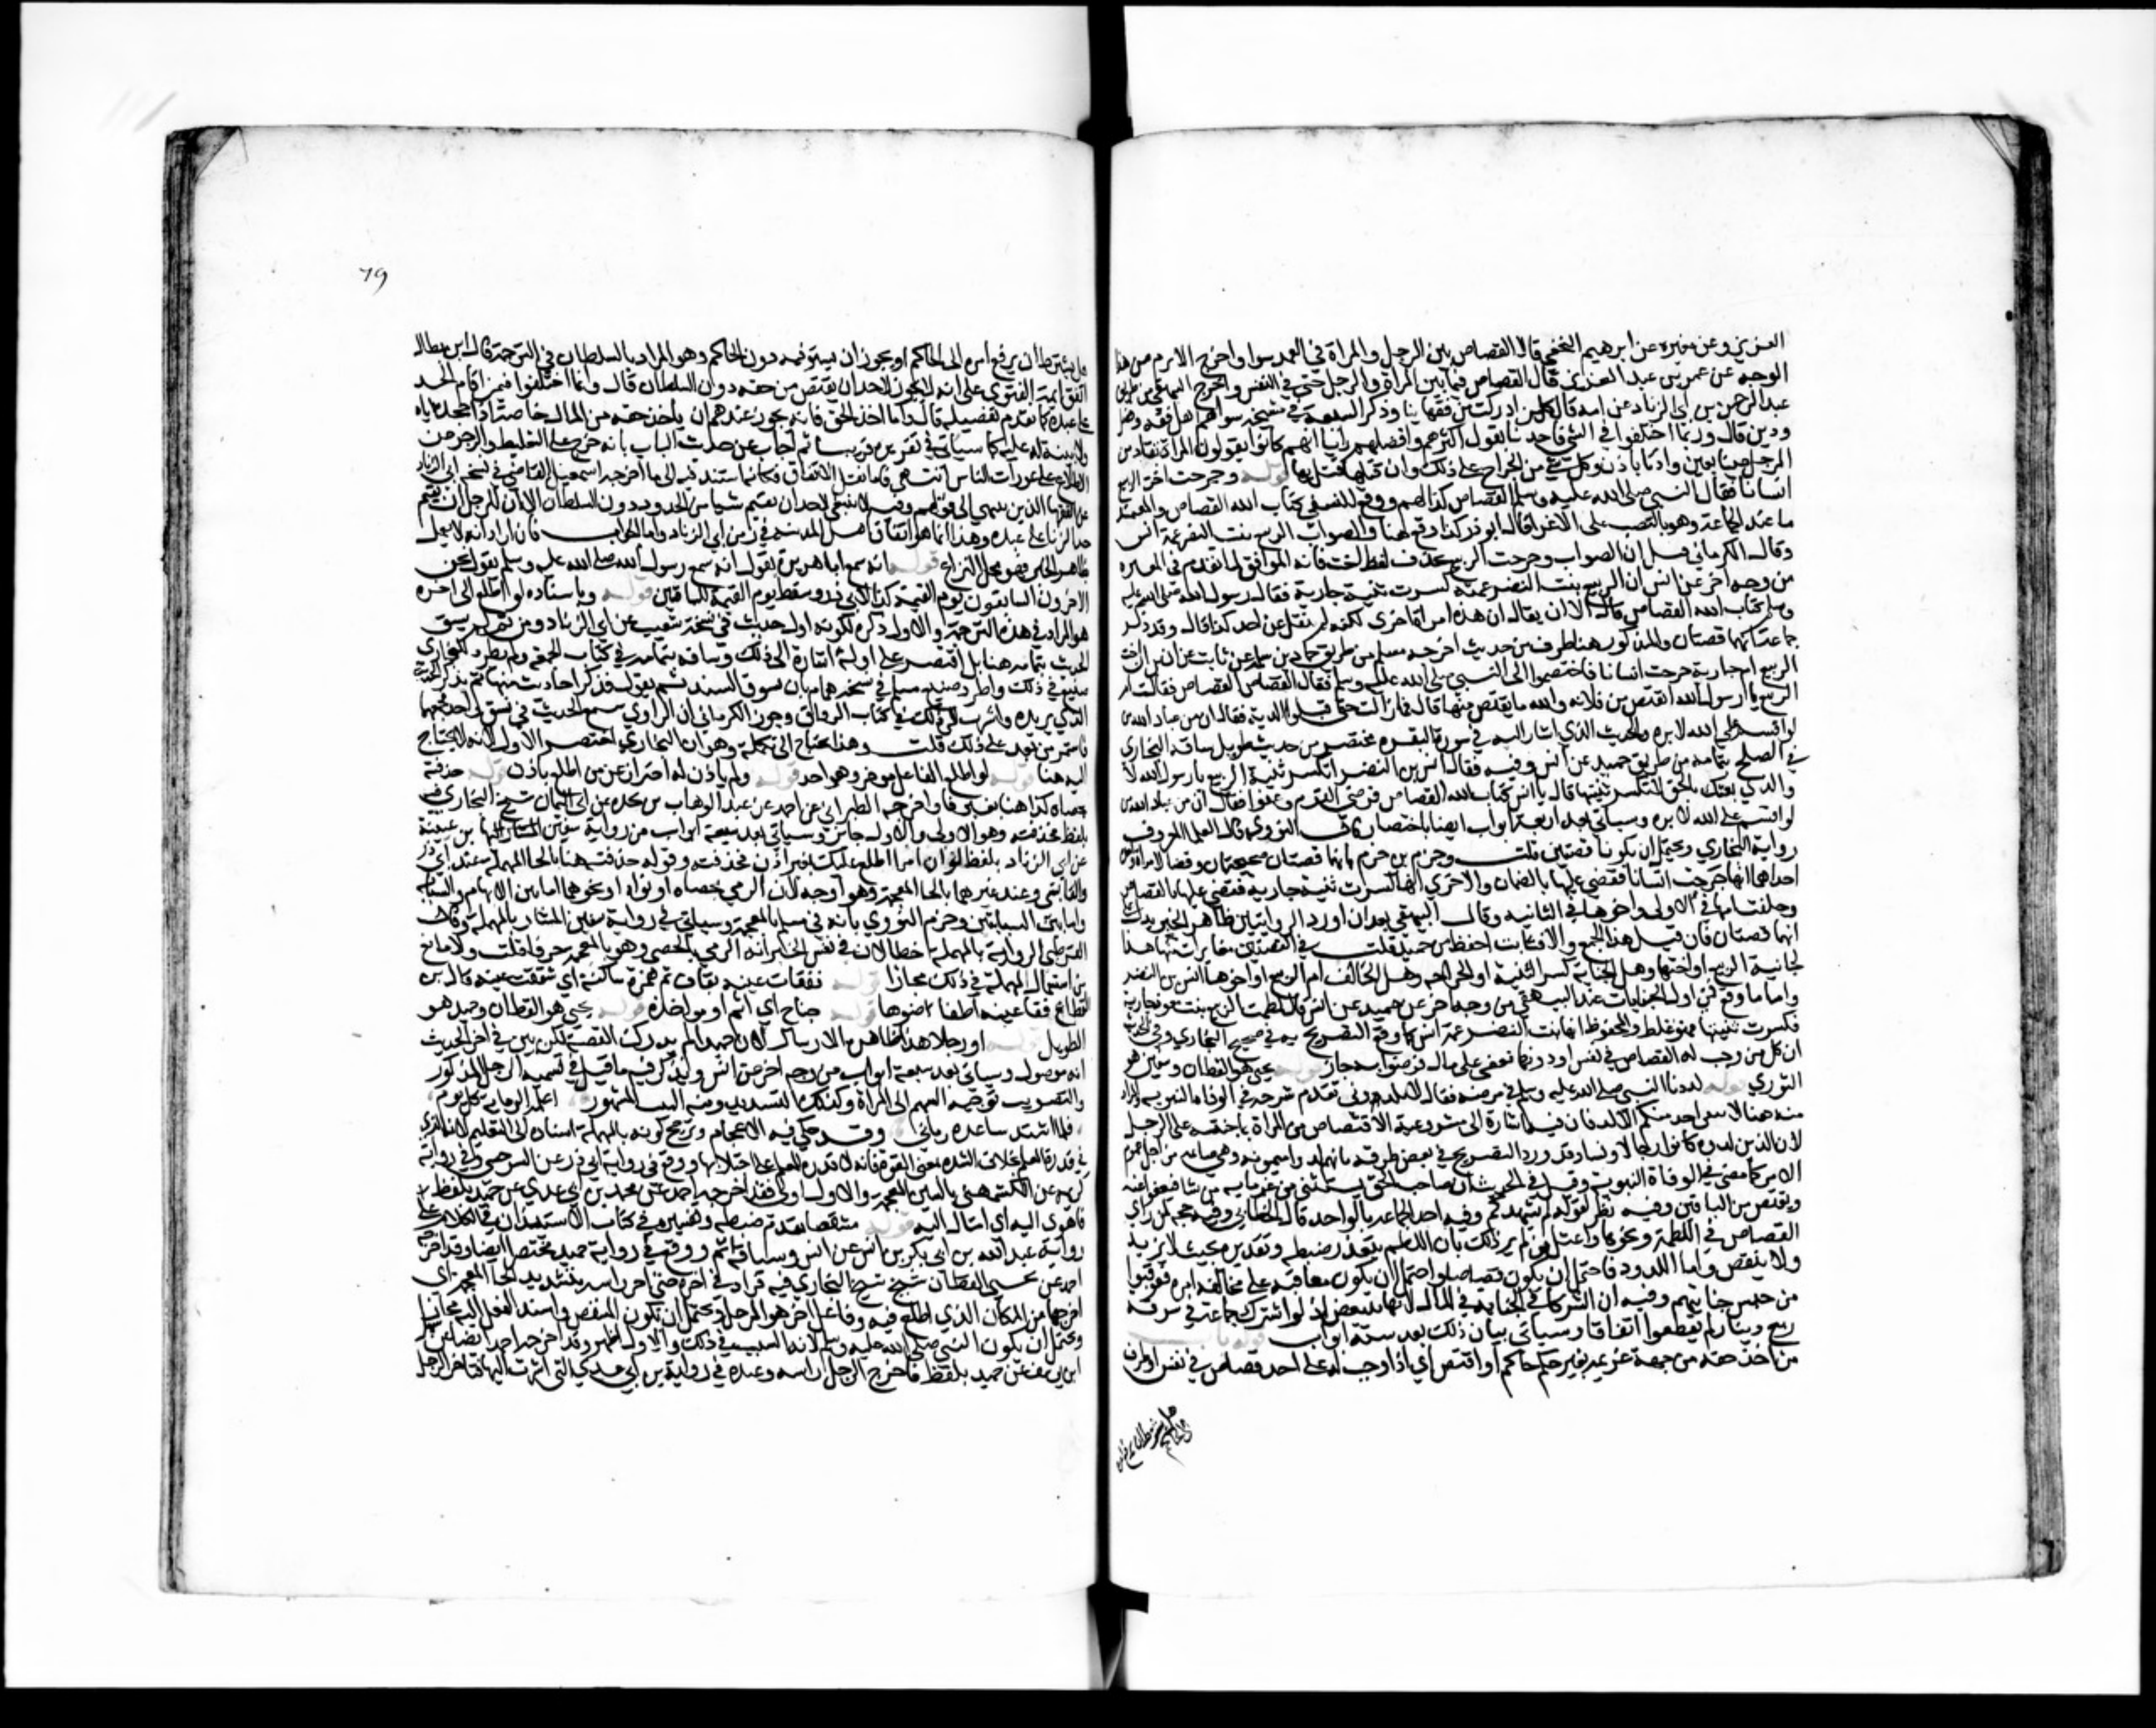 العزيز وعن مغيرة عن ابرهيم النخعي قال القصاص بين الرجل والمراة في العمد سوا واخرج الاثرم من هذا
الوجه عن عمر بن عبد العزيز قال القصاص فيما بين المراة والرجل حتى في النفس واخرج البيهقي من طريق
عبد الرحمن بن ابي الزناد عن ابيه قال كل من ادركت من فقهاينا وذكر السبعة في مشيخة سواهم اهل فقه وفضل
ودين قال وربما اختلفوا في الشي فاخذنا بقول اكثرهم وافضلهم رايا انهم كانوا يقولون المراة تقاد من
الرجل عينا بعين واذنا باذن وكل شي من الجراح على ذلك وان قتلها قتل بها قوله وجرحت اخت الربيع
انسانا فقال النبي صلى الله عليه وسلم القصاص كذا لهم ووقع للنسفي كتاب الله القصاص والمعتمد
ما عند الجماعة وهو بالنصب على الاغرا قال ابو ذر كذا وقع هنا والصواب الربيع بنت النضر عمة انس
وقال الكرماني قيل ان الصواب وجرحت الربيع بحذف لفظ اخت فانه الموافق لما تقدم في البقرة
من وجه اخر عن انس ان الربيع بنت النضر عمته كسرت ثنية جارية فقال رسول الله صلى الله عليه
وسلم كتاب الله القصاص قال الا ان يقال ان هذه امراة اخرى لكنه لم ينقل عن احد كذا قال وقد ذكر
جماعة انهما قصتان والمذكور هنا طرف من حديث اخرجه مسلم من طريق حماد بن سلمة عن ثابت عن انس ان اخت
الربيع ام حارثة جرحت انسانا فاختصموا الى النبي صلى الله عليه وسلم فقال القصاص القصاص فقالت ام
الربيع يا رسول الله ايقتص من فلانة والله ما يقتص منها قال فما زالت حتى قبلوا الدية فقال ان من عباد الله من
لو اقسم على الله لابره والحديث الذي اشار اليه في سورة البقره مختصر من حديث طويل ساقه البخاري
في الصلح بتمامه من طريق حميد عن انس وفيه فقال انس بن النضر اتكسر ثنية الربيع يا رسول الله لا
والذي بعثك بالحق لا تكسر ثنيتها قال يا انس كتاب الله القصاص فرضي القوم وعفوا فقال ان من عباد الله من
لو اقسم على الله لابره وسياتي بعد اربعة ابواب ايضا باختصار قال النووي قال العلما المعروف
رواية البخاري ويحتمل ان يكونا قصتين قلت وجزم بن حزم بانهما قصتان صحيحتان وقعتا لامراة واحدة
احداهما انها جرحت انسانا فقضي عليها بالضمان والاخرى انها كسرت ثنية جارية فقضي عليها بالقصاص
وحلفت امها في الاولى واخوها في الثانيه وقال البيهقي بعد ان اورد الروايتين ظاهر الخبرين يدل على
انهما قصتان فان قيل هذا الجمع والا فثابت احفظ من حميد قلت في القصتين مغايرات منها هل
الجانية الربيع او اختها وهل الجناية كسر الثنية او الجراحه وهل الحالف ام الربيع او اخوها انس بن النضر
واما ما وقع في اول الجنايات عند البيهقي من وجه اخر عن حميد عن انس قال لطمت الربيع بنت معوذ جارية
فكسرت ثنيتها فهو غلط والمحفوظ انها بنت النضر عمة انس كما وقع التصريح به في صحيح البخاري وفي الحديث
ان كل من وجب له القصاص في نفس او دونها فعفى على مال فرضوا به جاز قوله يحيى هو القطان وسفين هو
الثوري قوله لددنا النبي صلى الله عليه وسلم في مرضه فقال لا تلدوني تقدم شرحه في الوفاة النبويه والمراد
منه هنا لا يبقى احد منكم الا لد فان فيه اشارة الى مشروعية الاقتصاص من المراة بما جنته على الرجل
لان الذين لدوه كانوا رجالا ونسا وقد ورد التصريح في بعض طرقه بانهم لدوا ميمونه وهي صايمه من اجل عموم
الامر كما مضى في الوفاة النبوية وقيل في الحديث ان صاحب الحق يستثني من غرمايه من شا فيعفو عنه
ويقتص من الباقين وفيه نظر لقوله لم يشهدكم وفيه اخذ الجماعة بالواحد قال الخطابي وفيه حجة لمن راى
القصاص في اللطمة ونحوها واعتل من لم ير ذلك بان اللطم يتعذر ضبطه وتقديره بحيث لا يزيد
ولا ينقص واما اللدود فاحتمل ان يكون قصاصا واحتمل ان يكون معاقبة على مخالفة امره فعوقبوا
من جنس جنايتهم وفيه ان الشركا في الجناية في المال لانها تتبعض اذ لو اشترك جماعة في سرقة
ربع دينار لم يقطعوا اتفاقا وسياتي بيان ذلك بعد ستة ابواب قوله باب
من اخذ حقه من جهة غريمه بغير حكم حاكم او اقتص اي اذا وجب له على احد قصاص في نفس او طرف
79
هل يشترط ان يرفع امره الى الحاكم او يجوز ان يستوفيه دون الحاكم وهو المراد بالسلطان في الترجمة قال ابن بطال
اتفق ايمة الفتوى على انه لا يجوز لاحد ان يقتص من حقه دون السلطان قال وانما اختلفوا فيمن اقام الحد
على عبده كما تقدم تفصيله قال واما اخذ الحق فانه يجوز عندهم ان ياخذ حقه من المال خاصة اذا جحده اياه
ولا بينة له عليه كما سياتي تقريره قريبا ثم اجاب عن حديث الباب بانه خرج على التغليظ والزجر عن
الاطلاع على عورات الناس انتهى قلت فاما نقل الاتفاق فكانه استند فيه الى ما اخرجه اسمعيل القاضي في نسخة ابي الزناد
عن الفقها الذين ينتهي الى قولهم وفيه لا ينبغي لاحد ان يقيم شيا من الحدود دون السلطان الا ان للرجل ان يقيم
حد الزنا على عبده وهذا انما هو اتفاق اهل المدينة في زمن ابي الزناد واما الجواب فان اراد انه لا يعمل
بظاهر الخبر فهو محل النزاع قوله انه سمع ابا هريرة يقول انه سمع رسول الله صلى الله عليه وسلم يقول نحن
الاخرون السابقون يوم القيمة كذا لابي ذر وسقط يوم القيمة للباقين قوله وباسناده لو اطلع الى اخره
هو المراد في هذه الترجمة والاول ذكره لكونه اول حديث في نسخة شعيب عن ابي الزناد ومن ثم لم يسق
الحديث بتمامه هنا بل اقتصر على اوله اشارة الى ذلك وساقه بتمامه في كتاب الجمعة ولم يطرد للبخاري
صنيع في ذلك واطرد صنيع مسلم في نسخة همام بان يسوق السند ثم يقول فذكر احاديث منها ثم يذكر الحديث
الذي يريده واشرت الى ذلك في كتاب الرقاق وجوز الكرماني ان الراوي سمع الحديث في نسق واحد فجمعهما
فاستمر من بعده على ذلك قلت وهذا يحتاج الى تكملة وهو ان البخاري اختصر الاول لانه لا يحتاج
اليه هنا قوله لو اطلع الفاعل موخر وهو احد قوله ولم ياذن له احتراز عن من اطلع باذن قوله حذفته
بحصاة كذا هنا بغير فا واخرجه الطبراني عن احمد بن عبد الوهاب بن نجدة عن ابي اليمان شيخ البخاري فيه
بلفظ فحذفته وهو الاولى والاول جائز وسياتي بعد سبعة ابواب من رواية سفين بن عيينة
عن ابي الزناد بلفظ لو ان امرا اطلع عليك بغير اذن فحذفته وقوله حذفته هنا بالحا المهملة عند ابي ذر
والقابسي وعند غيرهما بالخا المعجمة وهو اوجه لان الرمي بحصاة او نواة او نحوهما اما بين الابهام والسبابة
واما بين السبابتين وجزم النووي بانه في مسلم بالمعجمة وسياتي في رواية سفين المشار بالمهملة وقال
القرطبي الرواية بالمهملة خطا لان في نفس الخبر انه الرمي بالحصى وهو بالمعجمة جزما قلت ولا مانع
من استعمال المهملة في ذلك مجازا قوله ففقات عينه بقاف ثم همزة ساكنة اي شققت عينه قال بن
القطاع فقا عينه اطفا ضوءها قوله جناح اي اثم او مواخذة قوله يحيى هو القطان وحميد هو
الطويل قوله ان رجلا هذا ظاهره الارسال لان حميدا لم يدرك القصة لكن بين في اخر الحديث
انه موصول وسياتي بعد سبعة ابواب من وجه اخر عن انس وليذكر فيه ما قيل في تسمية الرجل المذكور
والتصويب توجيه السهم الى المراة وكذلك التسديد ومنه البيت المشهور اعلمه الرماية كل يوم
فلما اشتد ساعده رماني وقد حكي فيه الاعجام وترجح كونه بالمهملة باسناده الى التعليم لانه الذي
في قدرة المعلم بخلاف الشدة بمعنى القوة فانه لا قدرة للمعلم على اجتلابها ووقع في رواية ابي ذر عن السرخسي وفي رواية
كريمة عن الكشميهني بالشين المعجمة والاول اولى فقد اخرجه احمد عن محمد بن ابي عدي عن حميد بلفظ
فاهوى اليه اي امال اليه قوله مشقصا تقدم ضبطه وتفسيره في كتاب الاستيذان في الكلام على
رواية عبد الله بن ابي بكر بن انس عن انس وسياقه اتم ووقع في رواية حميد مختصرا ايضا وقد اخرجه
احمد عن يحيى القطان شيخ شيخ البخاري فيه فزاد في اخره حتى اخر راسه بتشديد الخا المعجمة اي
اخرجها من المكان الذي اطلع فيه وفاعل اخر هو الرجل ويحتمل ان يكون المشقص واسند الفعل اليه مجازا
ويحتمل ان يكون النبي صلى الله عليه وسلم لانه السبب في ذلك والاول اظهر وقد اخرجه احمد ايضا عن
ابن ابي عدي عن حميد بلفظ فاخرج الرجل راسه وعنده في رواية بن ابي عدي التي اشرت اليها فتاخر الرجل